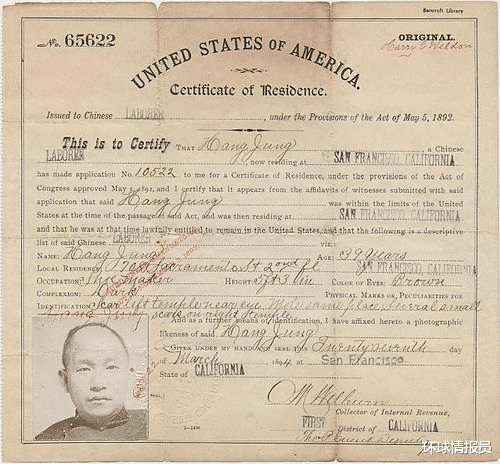 Bancroft Library
No. 65622
ORIGINAL.
Harry G Heldon
UNITED STATES OF AMERICA.
Certificate of Residence.
Issued to Chinese LABORER, under the Provisions of the Act of May 5, 1892.
This is to Certify THAT Hang Jung, a Chinese
LABORER, now residing at SAN FRANCISCO, CALIFORNIA
has made application No. 10522 to me for a Certificate of Residence, under the provisions of the Act of
Congress approved May 5, 1892, and I certify that it appears from the affidavits of witnesses submitted with said
application that said Hang Jung was within the limits of the United
States at the time of the passage of said Act, and was then residing at SAN FRANCISCO, CALIFORNIA
and that he was at that time lawfully entitled to remain in the United States, and that the following is a descriptive
list of said Chinese LABORER viz.:
NAME: Hang Jung AGE: 39 Years
LOCAL RESIDENCE: Sacramento St 2nd fl SAN FRANCISCO, CALIFORNIA
OCCUPATION: Shoe Maker HEIGHT: 5 ft 3 in COLOR OF EYES: Brown
COMPLEXION: Dark PHYSICAL MARKS OR PECULIARITIES FOR
IDENTIFICATION: Scar left temple near eye. Mole same place. Several small
scars on right temple.
And as a further means of identification, I have affixed hereto a photographic
likeness of said Hang Jung
GIVEN UNDER MY HAND AND SEAL this Twenty seventh day
of March, 1894, at San Francisco,
State of CALIFORNIA
[SEAL.]
O M Welburn
Collector of Internal Revenue,
FIRST District of CALIFORNIA
2-1426
环球情报员